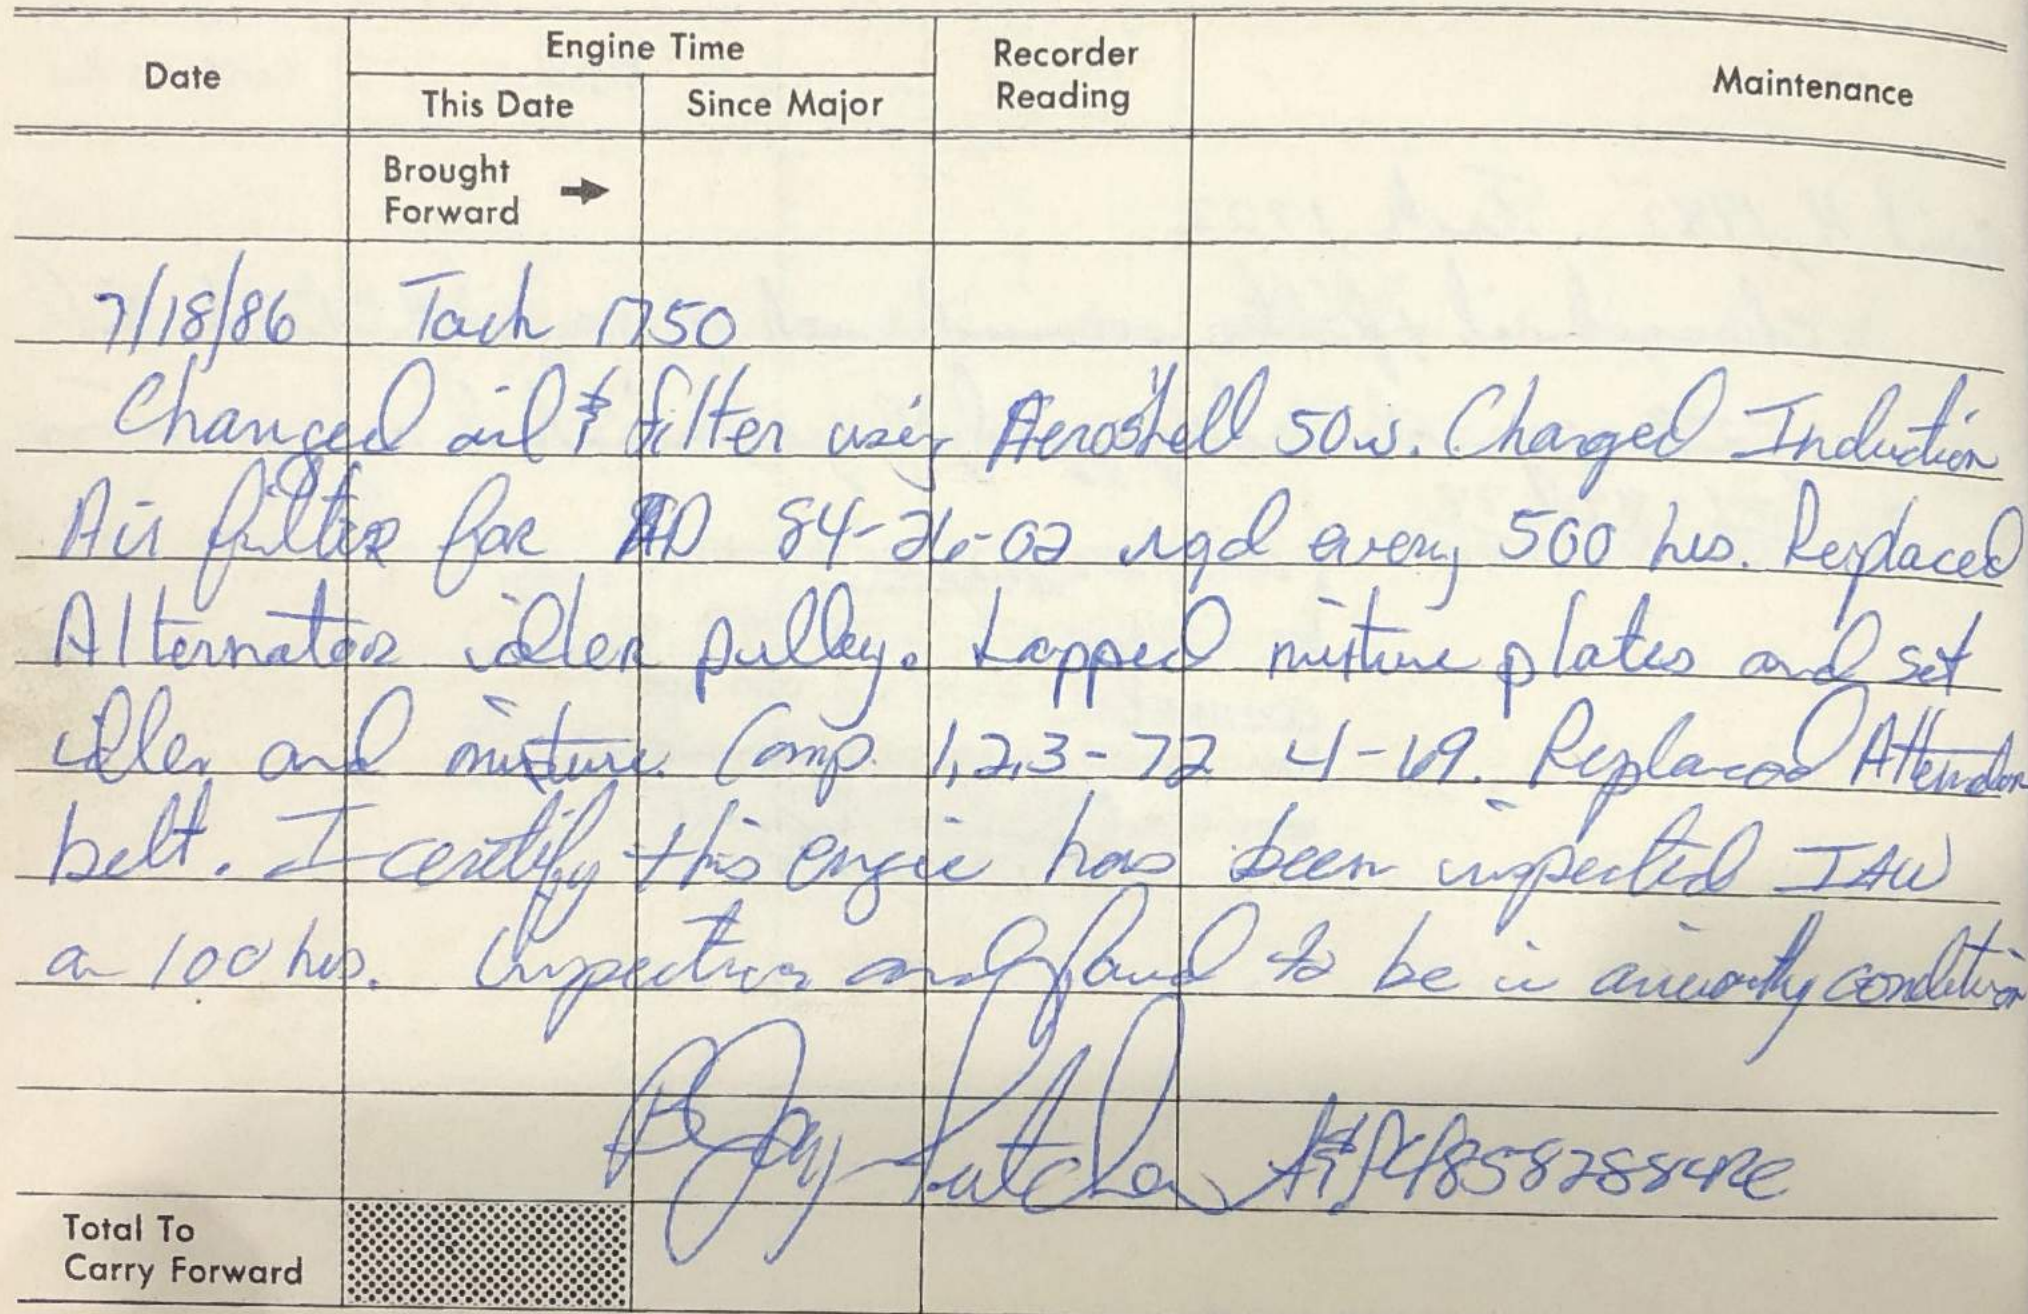 Date
Engine Time
This Date
Since Major
Recorder
Reading
Maintenance
Brought
Forward
7/18/86 Tach 1750
Changed oil & filter using Aeroshell 50w. Changed Induction
Air filter for AD 84-26-02 rqd every 500 hrs. Replaced
Alternator idler pulley. Lapped mixture plates and set
idler and mixture. Comp. 1,2,3-72 4-69. Replaced
belt. I certify this engie has been inspected IAW
a 100 hrs. Inspection and found to be in airworthy condition
A&P
Total To
Carry Forward